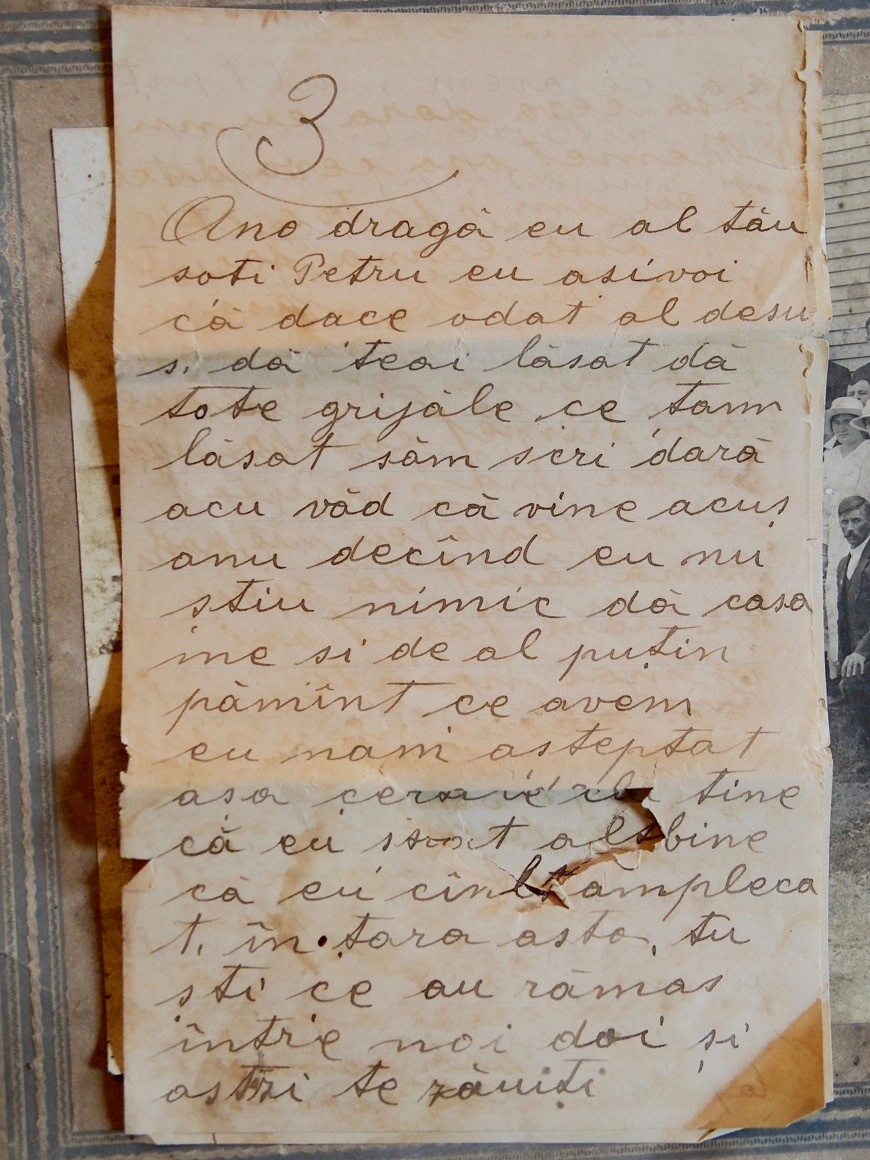 3
Ano dragă eu al tău
soti Petru eu asi voi
că dace odat al desu
s. dă teai lăsat dă
tote grijăle ce tam
lăsat săm scri dară
acu văd că vine acus
anu decînd eu nu
stiu nimic dă casa
me si de al puțin
pămînt ce avem
eu nam asteptat
asa tine
că eu sînt bine
că eu ămpleca
t. în țara asta, tu
sti ce au rămas
între noi doi și
astzi te